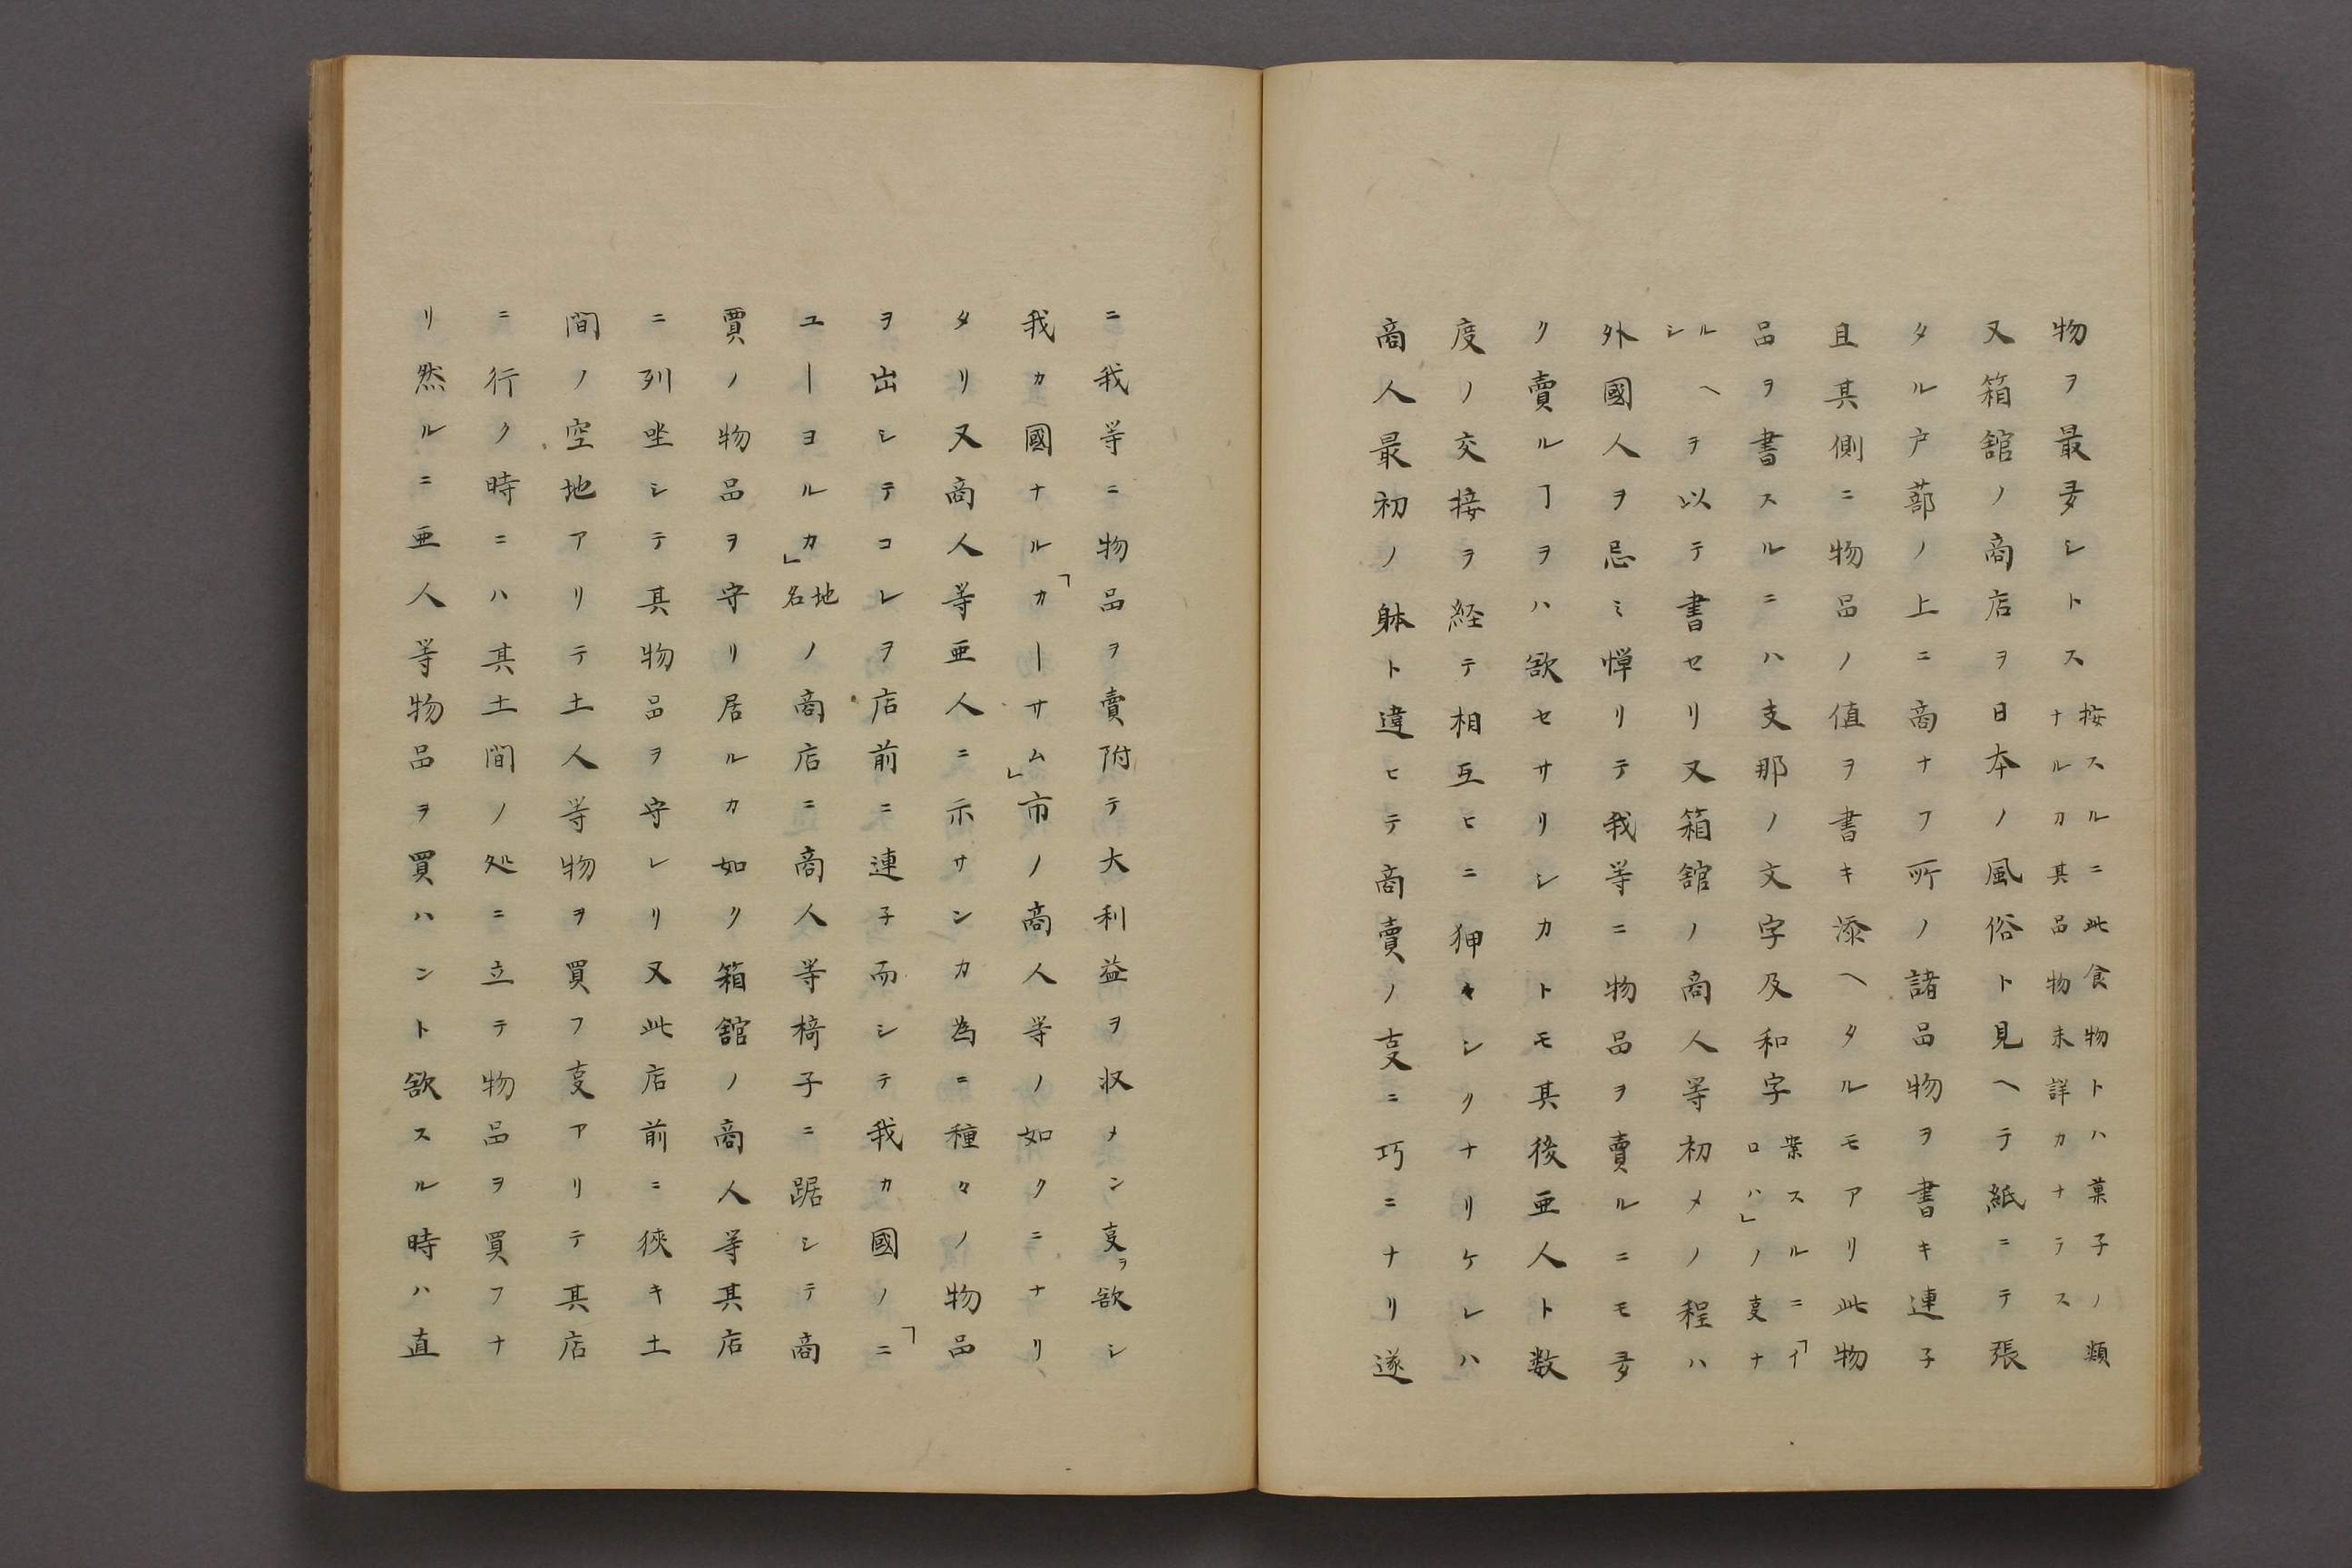 物ヲ最多シトス按スルニ此食物トハ菓子ノ類ナルカ其品物未詳カナテス
又箱舘ノ商店ヲ日本ノ風俗ト見ヘテ紙ニテ張
タル戸蔀ノ上ニ商ナフ所ノ諸品物ヲ書キ連子
且其側ニ物品ノ値ヲ書キ添ヘタルモアリ此物
品ヲ書スルニハ支那ノ文字及和字案スルニ「イロハ」ノ𫝆ナ
ルシヘヲ以テ書セリ又箱舘ノ商人等初メノ程ハ
外國人ヲ忌ミ憚リテ我等ニ物品ヲ賣ルニモ多
ク賣ルヿヲハ欲セサリシカトモ其後亜人ト数
度ノ交接ヲ経テ相互ヒニ狎々シクナリケレハ
商人最初ノ躰ト違ヒテ商賣ノ叓ニ巧ニナリ遂
ニ我等ニ物品ヲ賣附テ大利益ヲ収メン叓ヲ欲シ
我カ國ナル「カーサム」市ノ商人等ノ如クニナリ
タリ又商人等亜人ニ示サンカ為ニ種々ノ物品
ヲ出シテコレヲ店前ニ連子而シテ我カ國ノ「ニ
ユーヨルカ」地名ノ商店ニ商人等椅子ニ踞シテ商
賈ノ物品ヲ守リ居ルカ如ク箱舘ノ商人等其店
ニ列坐シテ其物品ヲ守レリ又此店前ニ狹キ土
間ノ空地アリテ土人等物ヲ買フ叓アリテ其店
ニ行ク時ニハ其土間ノ処ニ立テ物品ヲ買フナ
リ然ルニ亜人等物品ヲ買ハント欲スル時ハ直